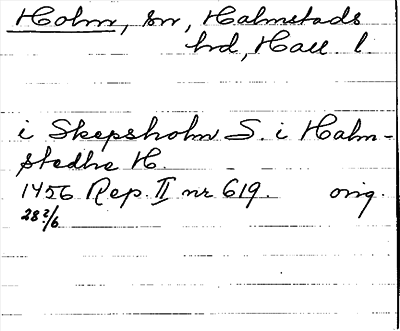 Holm, sn, Halmstads
hd, Hall. l.
i Skepsholm S. i Halm-
stedhe H.
1456 Rep. II nr 619. orig.
28 2/6